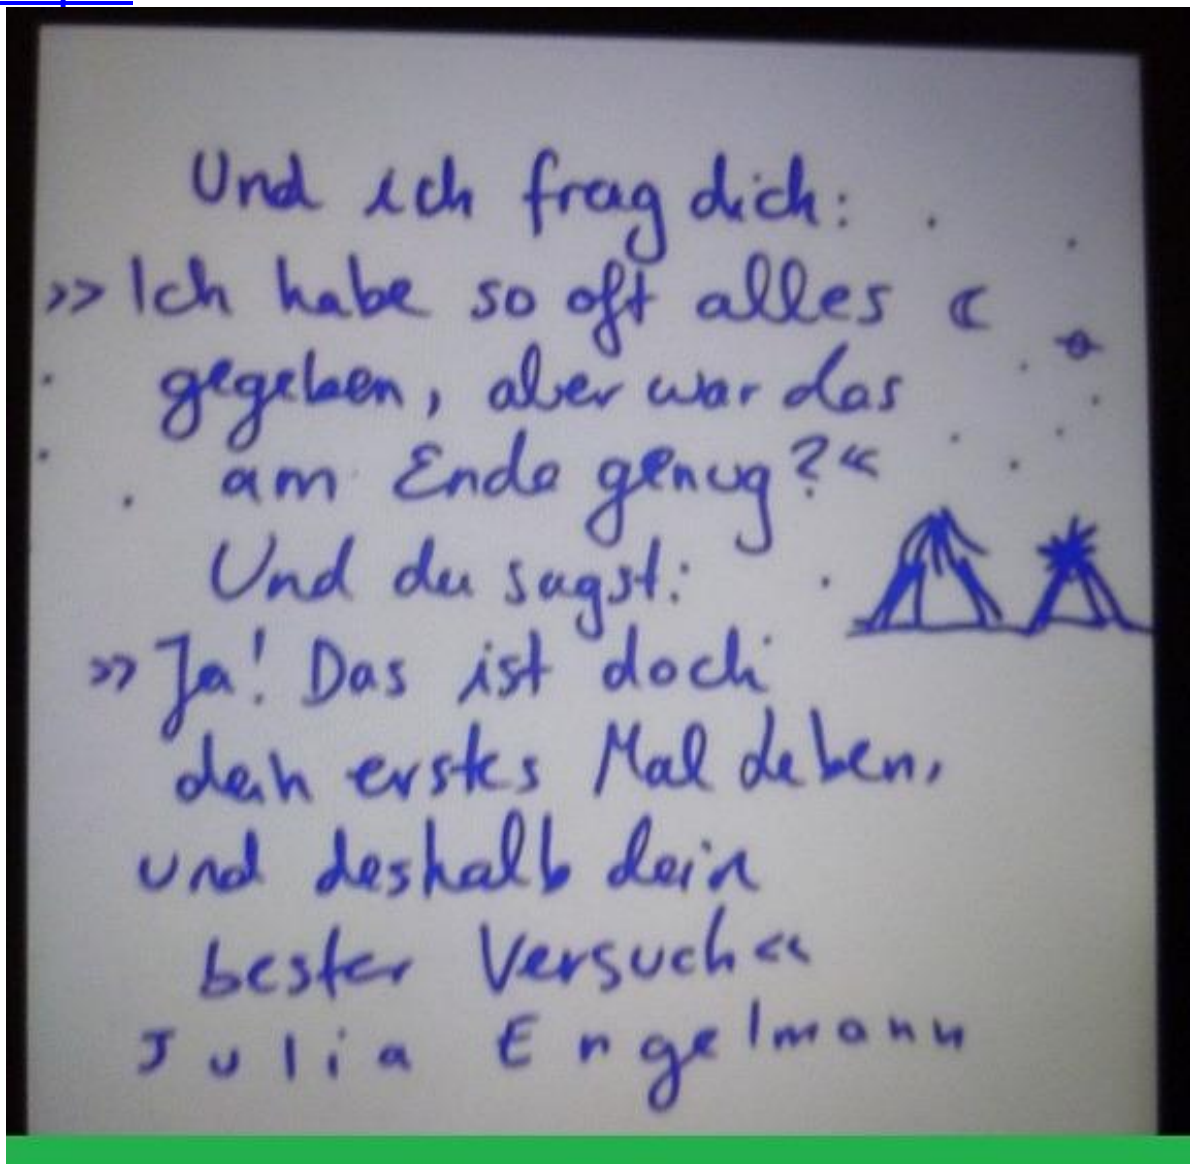 Und ich frag dich:
»Ich habe so oft alles
gegeben, aber war das
am Ende genug?«
Und du sagst:
»Ja! Das ist doch
dein erstes Mal Leben,
und deshalb dein
bester Versuch«
Julia Engelmann